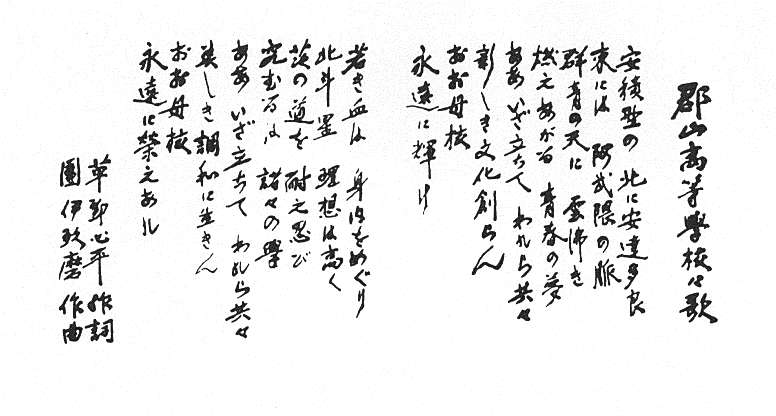 郡山高等學校々歌
安積野の 北に安達多良
東には 阿武隈の脈
群青の天に 雲沸き
燃えあがる 青春の夢
ああ いざ立ちて われら共々
新しき文化創らん
おお母校
永遠に輝け
若き血は 身内をめぐり
北斗星 理想は高く
茨の道を 耐え忍び
究むるは 諸々の學
ああ いざ立ちて われら共々
美しき調和に生きん
おお母校
永遠に榮えあれ
草野心平 作詞
團伊玖磨 作曲